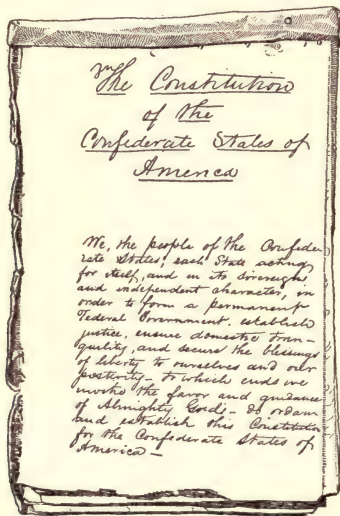 The Constitution
of the
Confederate States of
America
We, the people of the Confede-
rate States, each State acting
for itself, and in its sovereign
and independent character, in
order to form a permanent
Federal Government, establish
justice, ensure domestic tran-
quility, and secure the blessings
of liberty to ourselves and our
posterity, to which ends we
invoke the favor and guidance
of Almighty God, - do ordain
and establish this Constitution
for the Confederate States of
America -